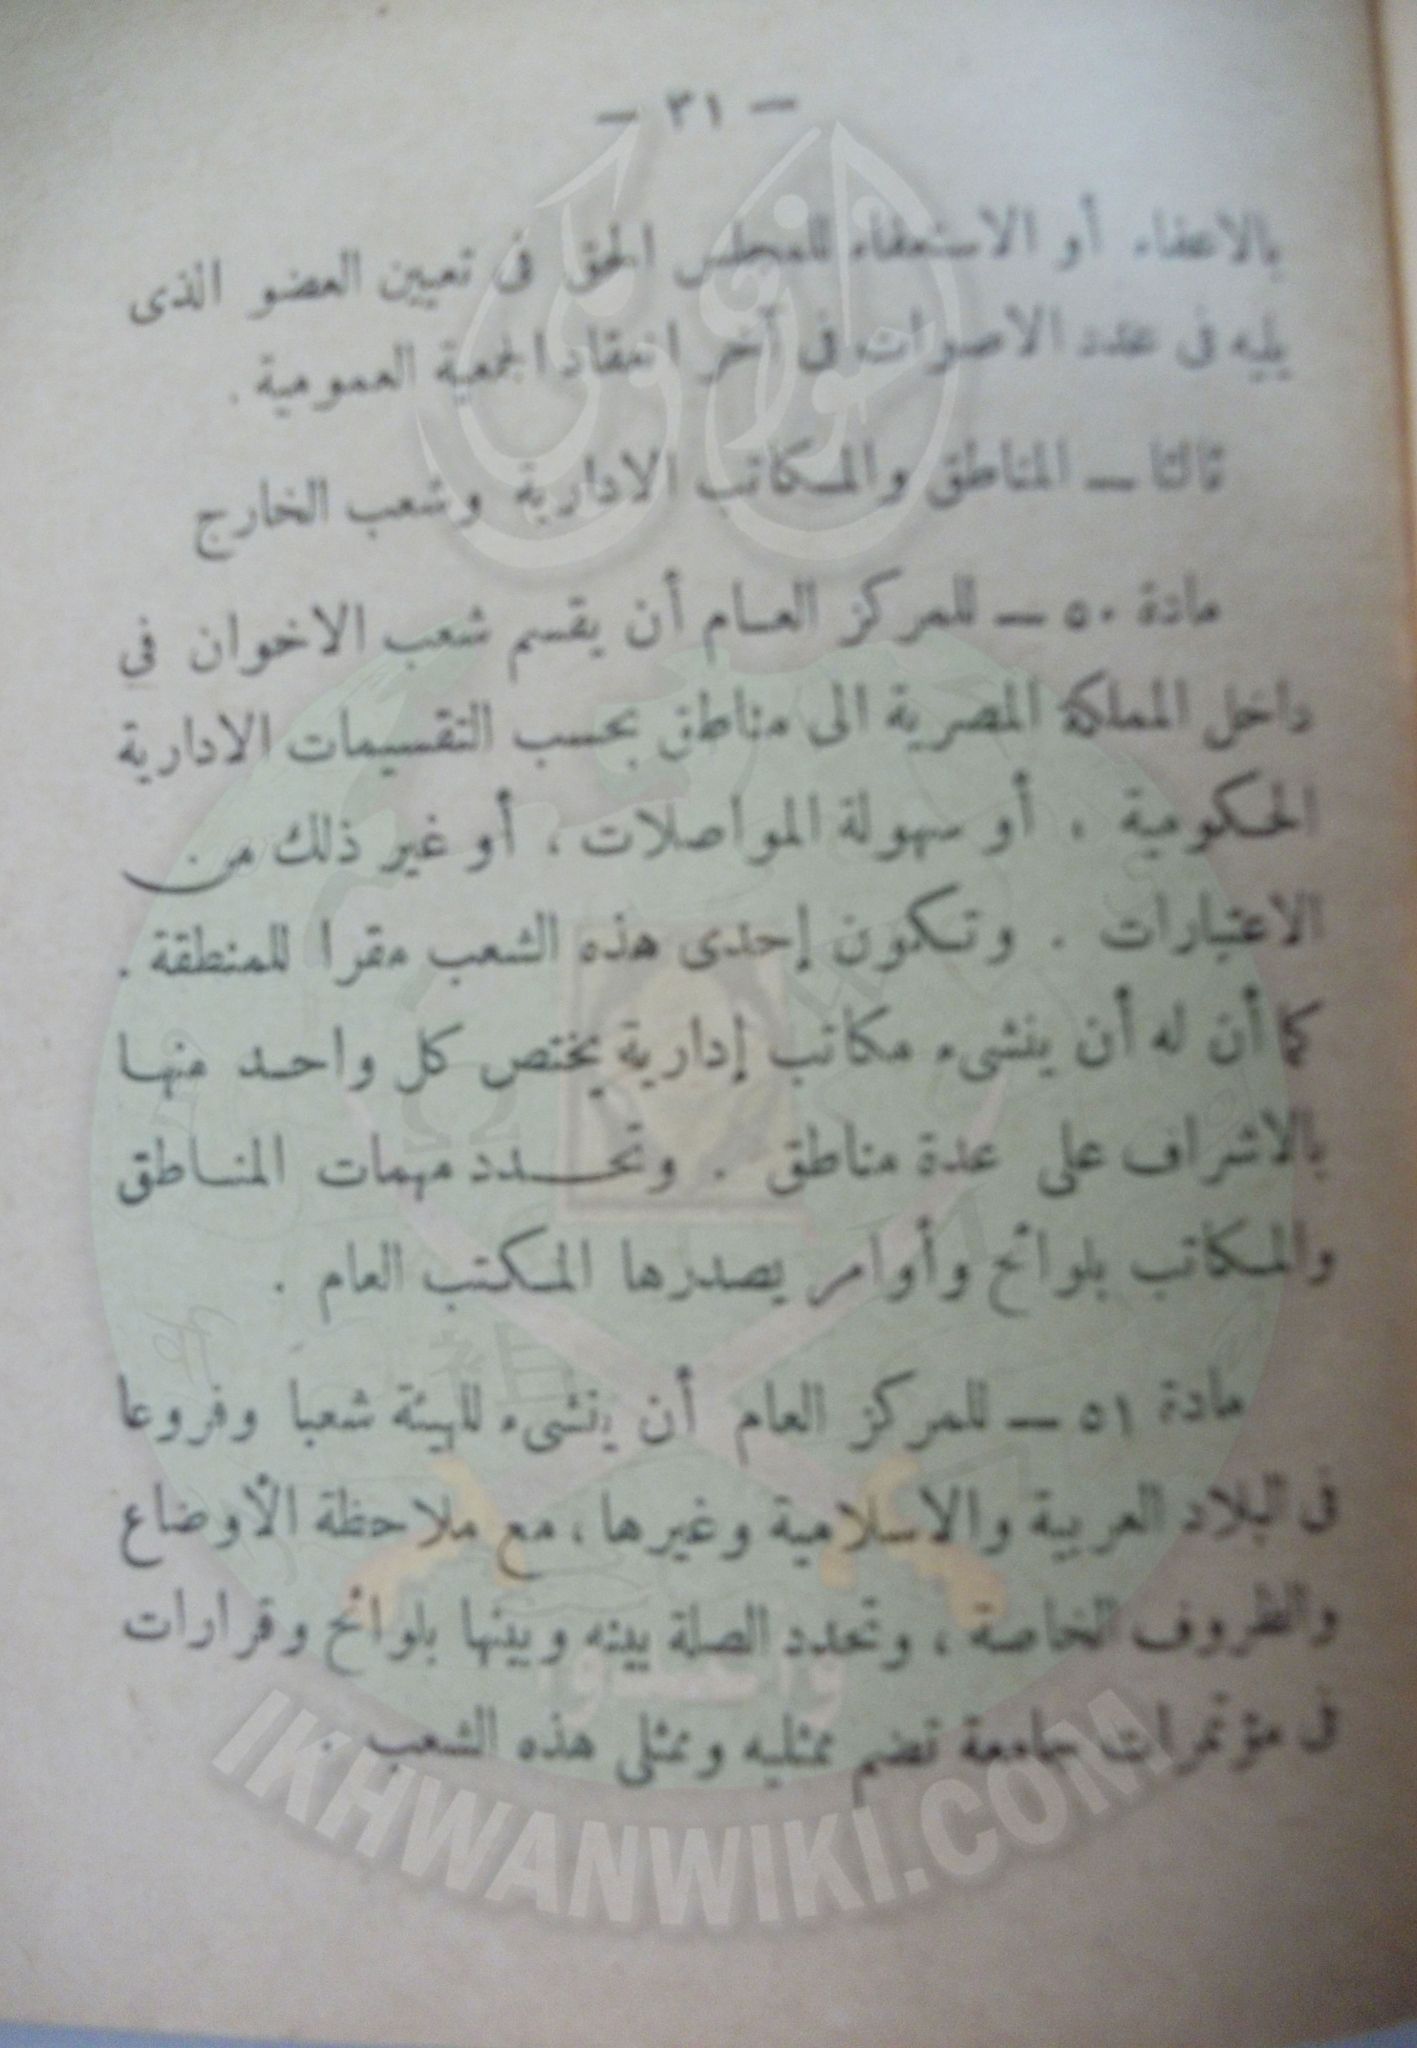 — ٣١ —
بالاعفاء أو الاستعفاء للمجلس الحق فى تعيين العضو الذى
يليه فى عدد الاصوات فى آخر انعقاد الجمعية العمومية .
ثالثا — المناطق والمكاتب الادارية وشعب الخارج
مادة ٥٠ — للمركز العام أن يقسم شعب الاخوان فى
داخل المملكة المصرية الى مناطق بحسب التقسيمات الادارية
الحكومية ، أو سهولة المواصلات ، أو غير ذلك من
الاعتبارات . وتكون إحدى هذه الشعب مقرا للمنطقة .
كما أن له أن ينشىء مكاتب إدارية يختص كل واحد منها
بالاشراف على عدة مناطق . وتحدد مهمات المناطق
والمكاتب بلوائح وأوامر يصدرها المكتب العام .
مادة ٥١ — للمركز العام أن ينشىء للهيئة شعبا وفروعا
فى البلاد العربية والاسلامية وغيرها ، مع ملاحظة الأوضاع
والظروف الخاصة ، وتحدد الصلة بينه وبينها بلوائح وقرارات
فى مؤتمرات جامعة تضم ممثليه وممثلى هذه الشعب .
وأعدوا
IKHWANWIKI.COM